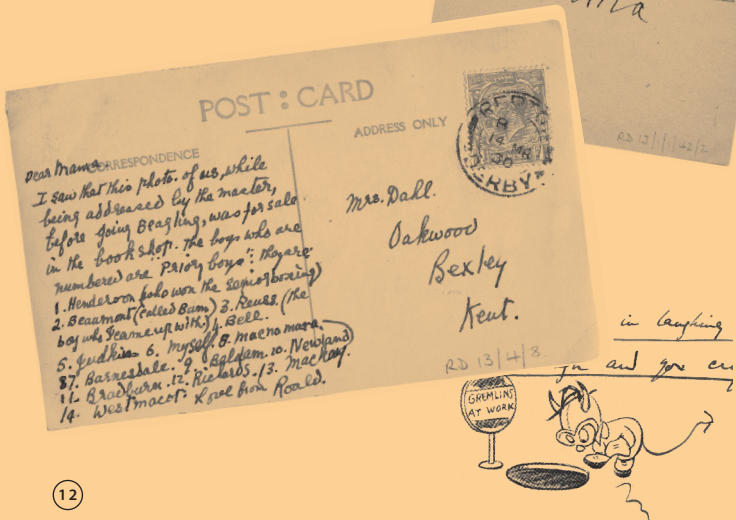 POST : CARD
CORRESPONDENCE
ADDRESS ONLY
REPTON
14 MR
30
DERBY
Dear Mama
I saw that this photo. of us, while
being addressed by the master,
before going Beagling, was for sale
in the book shop. The boys who are
numbered are Priory boys": they are
1. Henderson (who won the senior boxing)
2. Beaumont (called Bum) 3. Reuss. (the
boy who I came up with) 4. Bell.
5. Judkins 6. Myself. 8. macnamara.
87. Barnesdale. 9. Baldam. 10. Newland)
11. Bradburn. 12. Richards. 13. Mackay.
14. Westmacot. Love from Roald.
Mrs. Dahl.
Oakwood
Bexley
Kent.
RD 13/4/8
RD 13/1/1/42/2
in laughing
and you
GREMLINS
AT WORK
12